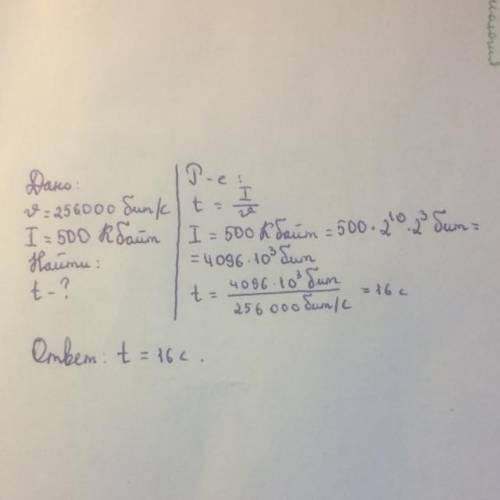 Дано:
v = 256000 бит/с
I = 500 Кбайт
Найти:
t - ?
Р-е:
t = I/v
I = 500 Кбайт = 500 · 2^10 · 2^3 бит =
= 4096 · 10^3 бит
t = 4096 · 10^3 бит / 256 000 бит/с = 16 с
Ответ: t = 16 с.